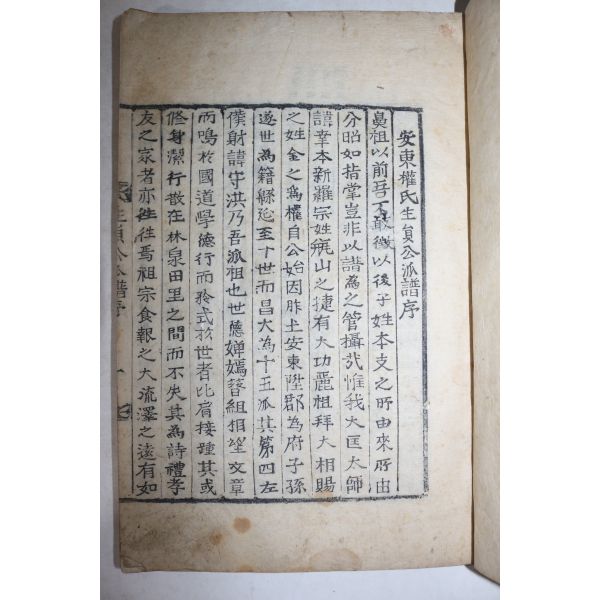 安東權氏生員公派譜序
鼻祖以前吾不最徵以後子姓本支之所由來所由
分昭如指掌豈非以譜爲之管攝哉惟我大匡太師
諱幸本新羅宗姓甁山之捷有大功麗祖拜大相賜
之姓金之爲權自公始因胙土安東陞郡爲府子孫
遂世爲籍縣延至十世而昌大爲十五派其第四左
僕射諱守洪乃吾派祖也世德蟬嫣簪組相望文章
而鳴於國道學德行而矜式於世者比肩接踵其或
修身潔行散在林泉田里之間而不失其爲詩禮孝
友之家者亦往往焉祖宗食報之大流澤之遠有如
生員公派譜序 一